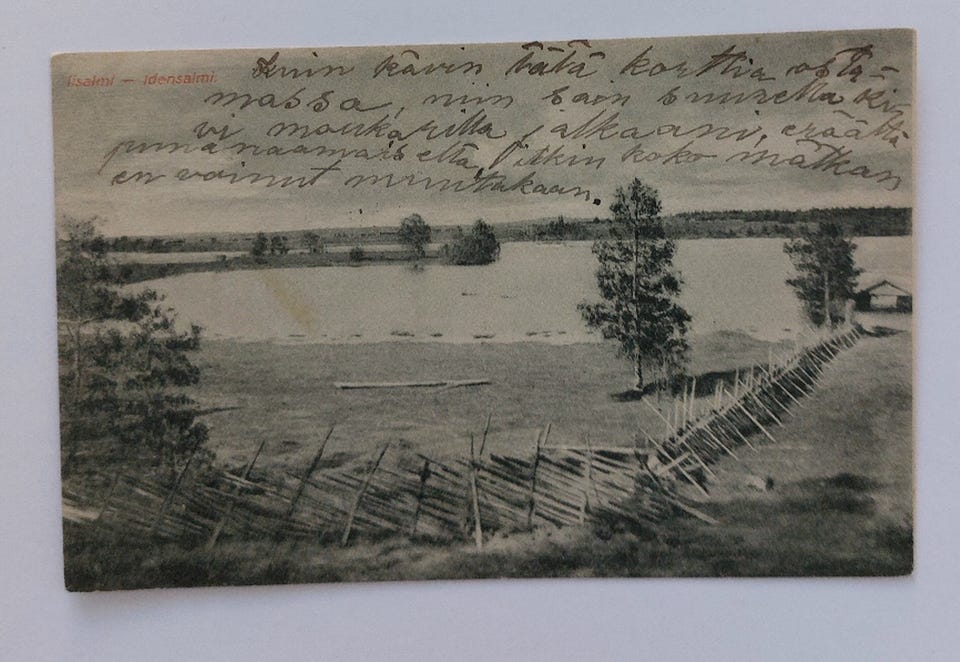 Iisalmi — Idensalmi.
Kuin kävin tätä korttia osta-
massa, niin sain suurella ki-
vi moukarilla jalkaani, eräältä
punanaamaiselta, Pitkin koko matkan
en voinut muutakaan.